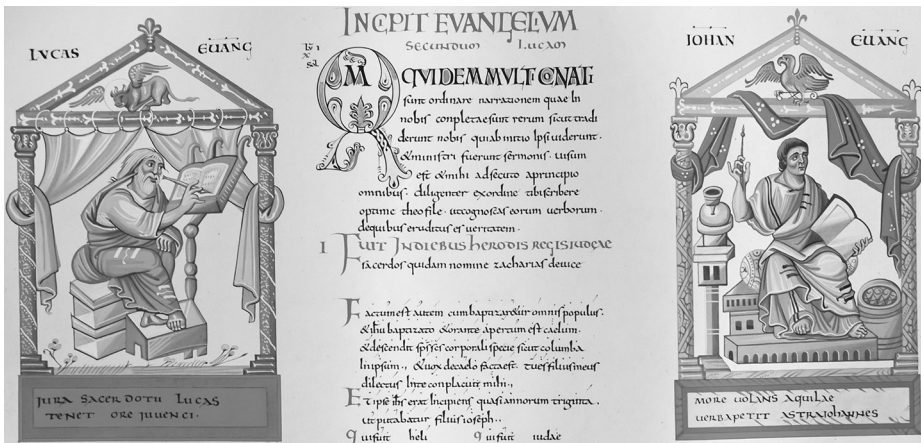 LVCAS EVANG
IURA SACERDOTII LUCAS
TENET ORE IUVENCI·
INCIPIT EVANGELIVM
SECUNDUM LUCAM
QVIDEM MVLTI CONATI
sunt ordinare narrationem quae in
nobis completae sunt rerum sicut tradi
derunt nobis qui ab initio ipsi viderunt·
& ministri fuerunt sermonis· visum
est & mihi adsecuto a principio
omnibus· diligenter ex ordine tibi scribere
optime theofile· ut cognoscas eorum verborum·
de quibus eruditus es veritatem·
I FUIT IN DIEBUS HERODIS REGIS IUDEAE
sacerdos quidam nomine zacharias de vice
Factum est autem cum baptizaretur omnis populus·
& ihu baptizato & orante apertum est caelum·
& descendit sps scs corporali specie sicut columba
in ipsum·, & vox de caelo facta est· tu es filius meus
dilectus in te conplacuit mihi·,
Et ipse ihs erat incipiens quasi annorum triginta·
ut putabatur filius ioseph·
qui fuit heli qui fuit iudae
IOHAN EVANG
MORE VOLANS AQUILAE
VERBA PETIT ASTRA IOHANNES